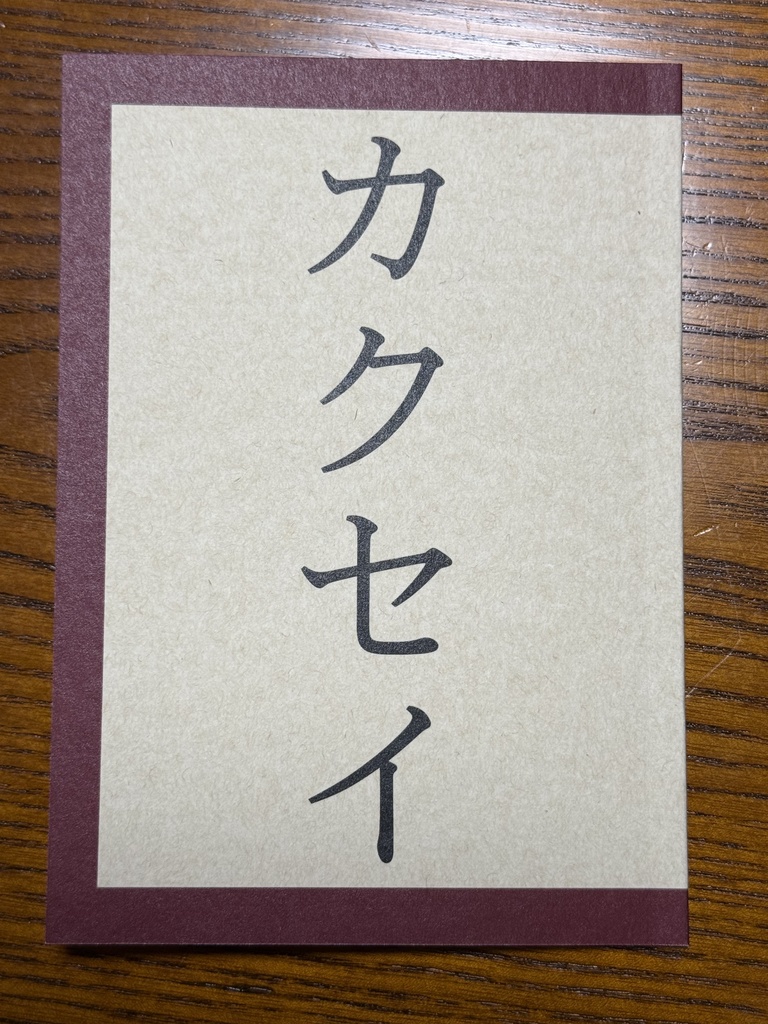 カクセイ